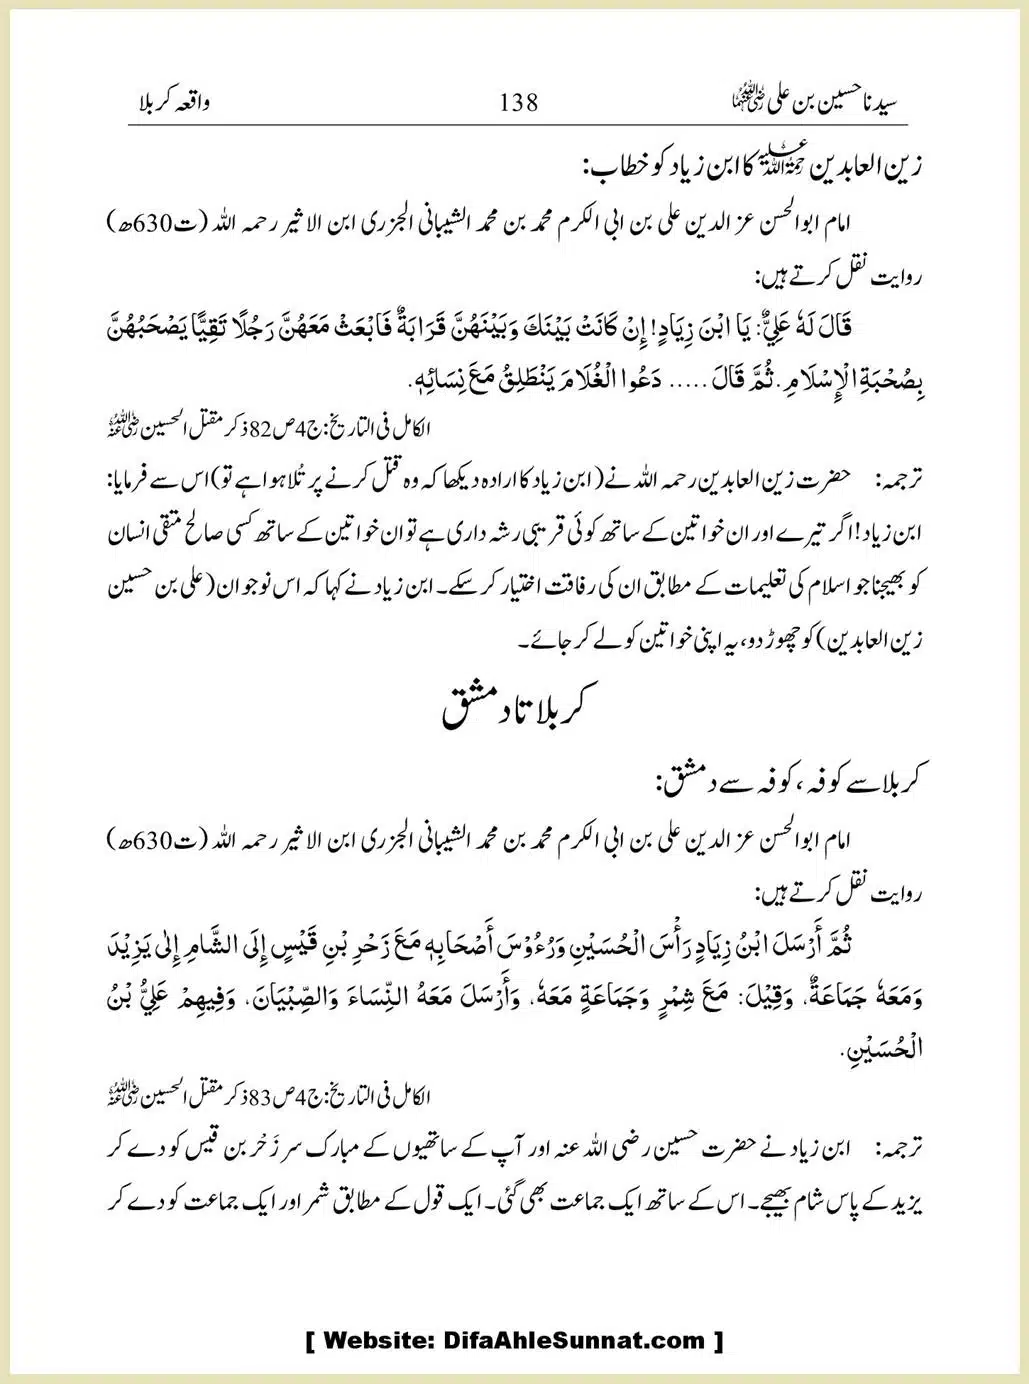 سیدنا حسین بن علی رضی اللہ عنہما 138 واقعہ کربلا
زین العابدین رحمۃ اللہ علیہ کا ابن زیاد کو خطاب:
امام ابوالحسن عز الدین علی بن ابی الکرم محمد بن محمد الشیبانی الجزری ابن الاثیر رحمہ اللہ (ت630ھ)
روایت نقل کرتے ہیں:
قَالَ لَهٗ عَلِيٌّ: يَا ابْنَ زِيَادٍ! إِنْ كَانَتْ بَيْنَكَ وَبَيْنَهُنَّ قَرَابَةٌ فَابْعَثْ مَعَهُنَّ رَجُلًا تَقِيًّا يَصْحَبُهُنَّ
بِصُحْبَةِ الْإِسْلَامِ. ثُمَّ قَالَ ..... دَعُوا الْغُلَامَ يَنْطَلِقُ مَعَ نِسَائِهٖ.
الکامل فی التاریخ: ج4ص82ذکر مقتل الحسین رضی اللہ عنہ
ترجمہ: حضرت زین العابدین رحمہ اللہ نے (ابن زیاد کا ارادہ دیکھا کہ وہ قتل کرنے پر تُلا ہوا ہے تو) اس سے فرمایا:
ابن زیاد! اگر تیرے اور ان خواتین کے ساتھ کوئی قریبی رشہ داری ہے تو ان خواتین کے ساتھ کسی صالح متقی انسان
کو بھیجنا جو اسلام کی تعلیمات کے مطابق ان کی رفاقت اختیار کر سکے۔ ابن زیاد نے کہا کہ اس نوجوان (علی بن حسین
زین العابدین) کو چھوڑ دو، یہ اپنی خواتین کو لے کر جائے۔
کربلا تا دمشق
کربلا سے کوفہ، کوفہ سے دمشق:
امام ابوالحسن عز الدین علی بن ابی الکرم محمد بن محمد الشیبانی الجزری ابن الاثیر رحمہ اللہ (ت630ھ)
روایت نقل کرتے ہیں:
ثُمَّ أَرْسَلَ ابْنُ زِيَادٍ رَأْسَ الْحُسَيْنِ وَرُءُوْسَ أَصْحَابِهٖ مَعَ زَحْرِ بْنِ قَيْسٍ إِلَى الشَّامِ إِلٰى يَزِيْدَ
وَمَعَهٗ جَمَاعَةٌ، وَقِيْلَ: مَعَ شِمْرٍ وَجَمَاعَةٍ مَعَهٗ، وَأَرْسَلَ مَعَهُ النِّسَاءَ وَالصِّبْيَانَ، وَفِيهِمْ عَلِيُّ بْنُ
الْحُسَيْنِ.
الکامل فی التاریخ: ج4ص83ذکر مقتل الحسین رضی اللہ عنہ
ترجمہ: ابن زیاد نے حضرت حسین رضی اللہ عنہ اور آپ کے ساتھیوں کے مبارک سر زَحْر بن قیس کو دے کر
یزید کے پاس شام بھیجے۔ اس کے ساتھ ایک جماعت بھی گئی۔ ایک قول کے مطابق شمر اور ایک جماعت کو دے کر
[ Website: DifaAhleSunnat.com ]